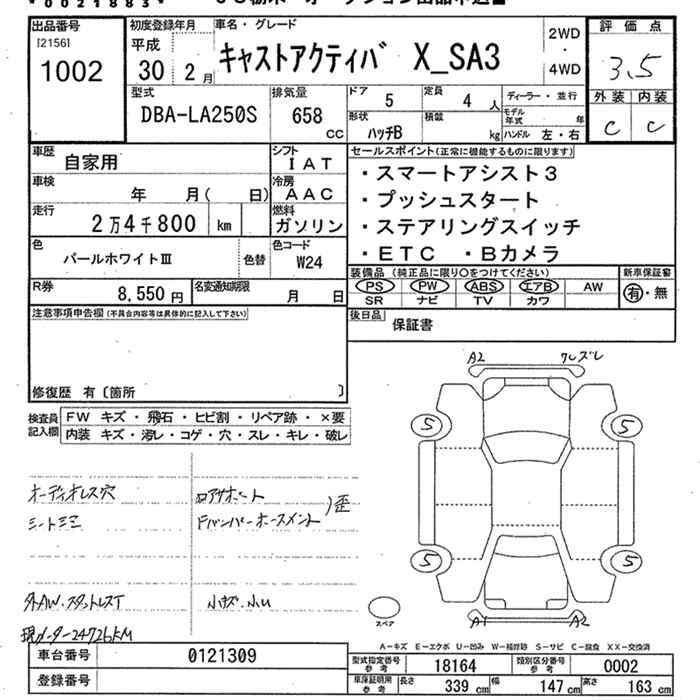 出品番号
[2156]
1002
初度登録年月
平成
30年 2月
車名・グレード
キャストアクティバ X_SA3
2WD
・
4WD
評価点
3.5
外装 内装
C C
型式
DBA-LA250S
排気量
658
CC
ドア 5
定員 4 人
形状 ハッチB
積載 kg
ディーラー・並行
モデル年式 年
ハンドル 左・右
車歴 自家用
シフト IAT
車検 年 月( 日)
冷房 AAC
走行 2万4千800 km
燃料 ガソリン
色 パールホワイトⅢ
色替
色コード W24
R券 8,550円
名変通知期限 月 日
セールスポイント(正常に機能するものに限ります)
・スマートアシスト3
・プッシュスタート
・ステアリングスイッチ
・ETC ・Bカメラ
装備品 (純正品に限り○をつけてください)
PS PW ABS エアB AW
SR ナビ TV カワ
新車保証書
有・無
後日品 保証書
注意事項申告欄(不具合内容等は具体的に記入して下さい)
修復歴 有〔箇所 〕
検査員記入欄
FW キズ・飛石・ヒビ割・リペア跡・×要
内装 キズ・汚レ・コゲ・穴・スレ・キレ・破レ
オーディオレス穴
シートシミ
外AW.スタットレスT
現メーター24726KM
コアサポート
バンパーホースメント
歪
小キズ.小U
A2
スレ
5
5
5
5
A1
A2
スペア
A-キズ E-エクボ U-凹み W-補修跡 S-サビ C-腐食 XX-交換済
車台番号 0121309
登録番号
型式指定番号 参考 18164
類別区分番号 参考 0002
車庫証明用 参考 長さ 339 cm 幅 147 cm 高さ 163 cm